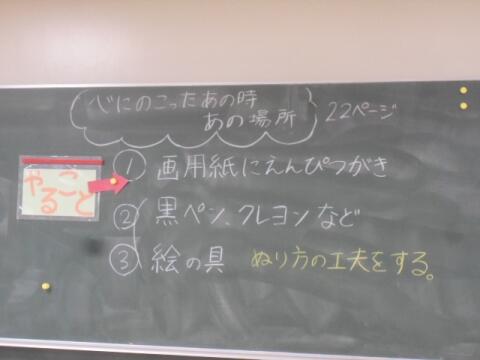 心にのこったあの時
あの場所
22ページ
やること
① 画用紙にえんぴつがき
② 黒ペン、クレヨンなど
③ 絵の具 ぬり方の工夫をする。